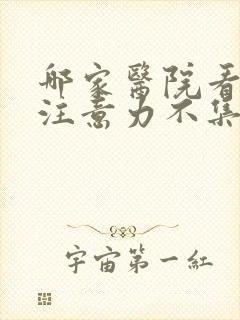 邮家醫院看
注意力不集
宇宙第一紅